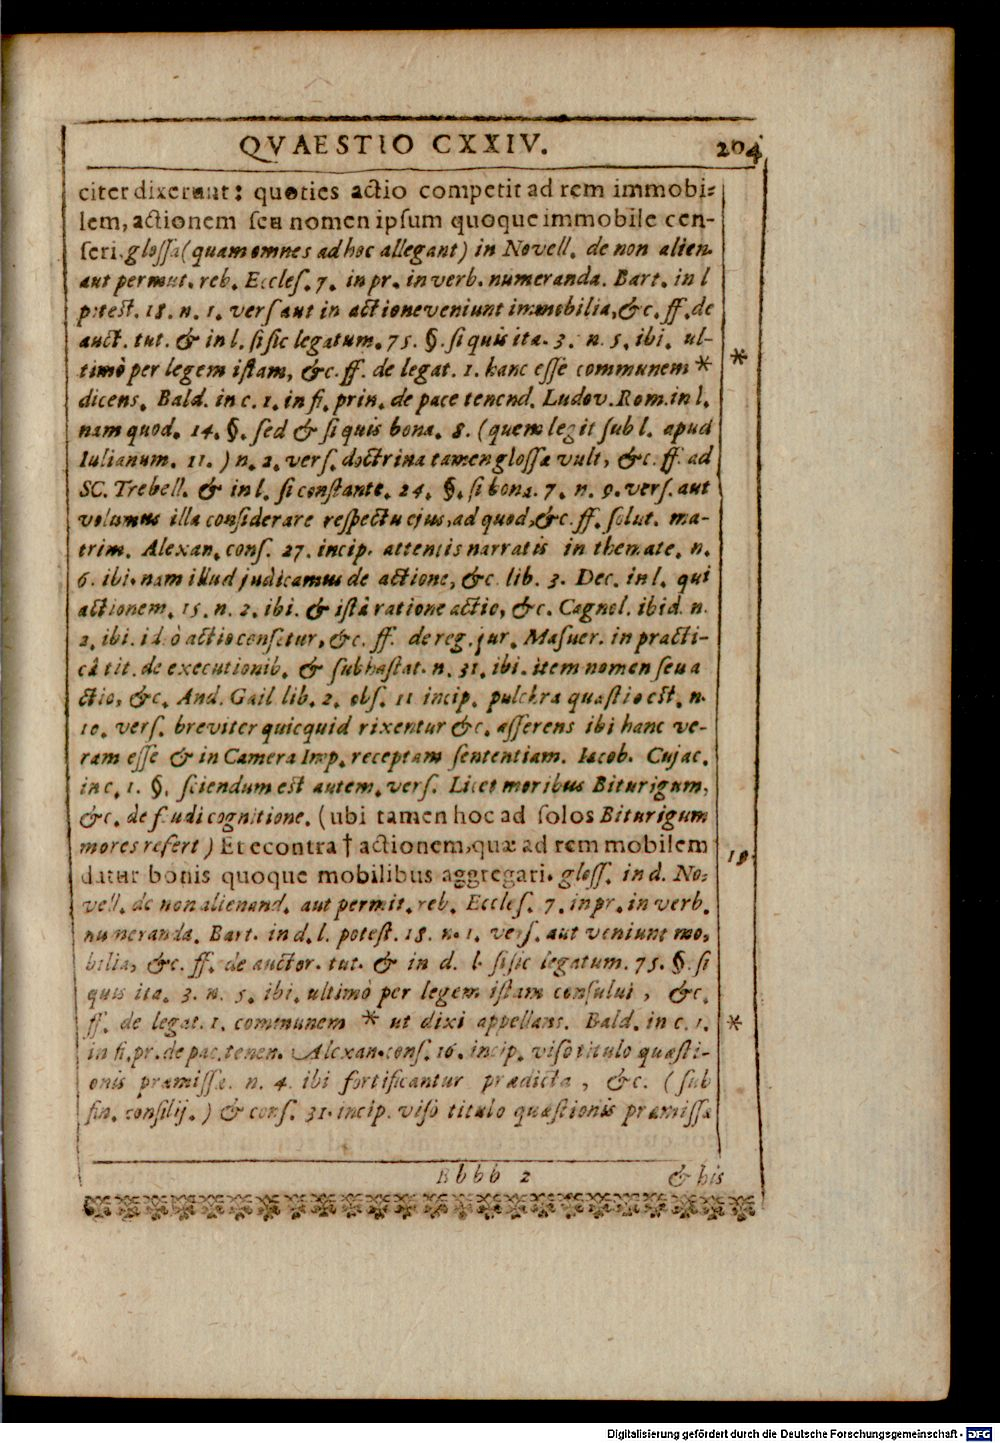 QVAESTIO CXXIV. 204
citer dixerunt: quoties actio competit ad rem immobi-
lem, actionem seu nomen ipsum quoque immobile cen-
seri. glossa (quam omnes ad hoc allegant) in Novell. de non alien.
aut permut. reb. Eccles. 7. in pr. in verb. numeranda. Bart. in l
potest. 18. n. 1. vers aut in actione veniunt immobilia, &c. ff. de
auct. tut. & in l. si sic legatum. 75. §. si quis ita. 3. n. 5. ibi. ul-
timò per legem istam, &c. ff. de legat. 1. hanc esse communem *
*
dicens. Bald. in c. 1. in fi. prin. de pace tenend. Ludov. Rom. in l.
nam quod. 14. §. sed & si quis bona. 8. (quem legit sub l. apud
Iulianum. 11. ) n. 2. vers. doctrina tamen glossæ vult, &c. ff. ad
SC. Trebell. & in l. si constante. 24. §. si bona. 7. n. 9. vers. aut
volumus illa considerare respectu ejus, ad quod, &c. ff. solut. ma-
trim. Alexan. cons. 27. incip. attentis narratis in themate. n.
6. ibi. nam illud judicamus de actione, &c. lib. 3. Dec. in l. qui
actionem. 15. n. 2. ibi. & istâ ratione actio, &c. Cagnol. ibid. n.
2. ibi. ideò actio censetur, &c. ff. de reg. jur. Masuer. in practi-
câ tit. de executionib. & subhastat. n. 31. ibi. item nomen seu a
ctio, &c. And. Gail lib. 2. obs. 11 incip. pulchra quæstio est. n.
10. vers. breviter quicquid rixentur &c. asserens ibi hanc ve-
ram esse & in Camera Imp. receptam sententiam. Iacob. Cujac.
in c. 1. §. sciendum est autem. vers. Licet moribus Biturigum,
&c. de feudi cognitione. (ubi tamen hoc ad solos Biturigum
mores refert) Et econtra † actionem, quæ ad rem mobilem
19.
datur bonis quoque mobilibus aggregari. gloss. in d. No-
vell. de non alienand. aut permut. reb. Eccles. 7. in pr. in verb.
numeranda. Bart. in d. l. potest. 18. n. 1. vers. aut veniunt mo-
bilia, &c. ff. de auctor. tut. & in d. l. si sic legatum. 75. §. si
quis ita. 3. n. 5. ibi. ultimò per legem istam consului, &c.
ff. de legat. 1. communem * ut dixi appellans. Bald. in c. 1.
*
in fi. pr. de pac. tenen. Alexan. cons. 16. incip. viso titulo quæsti-
onis præmissæ. n. 4. ibi fortificantur prædicta, &c. (sub
fin. consilij.) & cons. 31. incip. viso titulo quæstionis præmissæ
Bbbb 2 & his
Digitalisierung gefördert durch die Deutsche Forschungsgemeinschaft - DFG